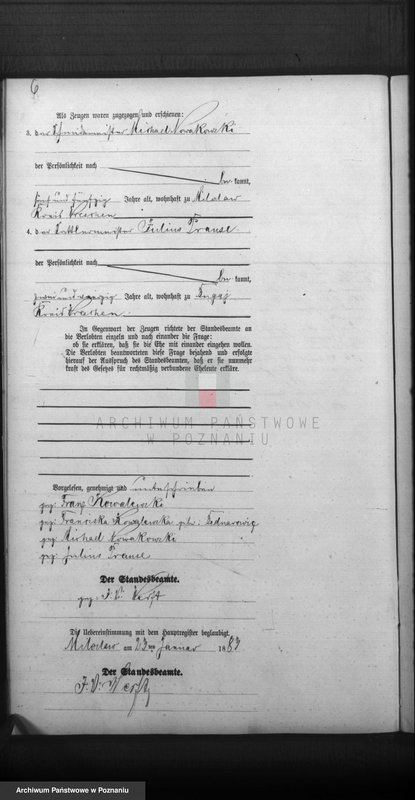 6
Als Zeugen waren zugezogen und erschienen:
3. der Schneidermeister Michael Nowakowski
der Persönlichkeit nach
be kannt,
fünf und fünfzig Jahre alt, wohnhaft zu Miloslaw
Kreis Wreschen
4. der Sattlermeister Julius
der Persönlichkeit nach
be kannt,
Jahre alt, wohnhaft zu
Kreis Wreschen.
In Gegenwart der Zeugen richtete der Standesbeamte an
die Verlobten einzeln und nach einander die Frage:
ob sie erklären, daß sie die Ehe mit einander eingehen wollen.
Die Verlobten beantworteten diese Frage bejahend und erfolgte
hierauf der Ausspruch des Standesbeamten, daß er sie nunmehr
kraft des Gesetzes für rechtmäßig verbundene Eheleute erkläre.
ARCHIWUM PAŃSTWOWE
W POZNANIU
Vorgelesen, genehmigt und unterschrieben
gez: Franz Kowalewski
gez: Franciska Kowalewska geb: Bednarowicz
gez: Michael Nowakowski
gez: Julius
Der Standesbeamte.
gez: J. V.
Die Uebereinstimmung mit dem Hauptregister beglaubigt.
Miloslaw am 23ten Januar 1883
Der Standesbeamte.
J. V:
Archiwum Państwowe w Poznaniu